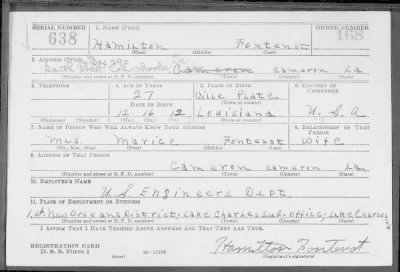 SERIAL NUMBER 1. NAME (Print) ORDER NUMBER
638 Hamilton Fontenot 168
(First) (Middle) (Last)
2. ADDRESS (Print)
Cameron Cameron La
(Number and street or R. F. D. number) (Town) (County) (State)
3. TELEPHONE 4. AGE IN YEARS 5. PLACE OF BIRTH 6. COUNTRY OF CITIZENSHIP
27 Ville Platte
DATE OF BIRTH (Town or county)
12 16 12 Louisiana U.S.A
(Exchange) (Number) (Mo.) (Day) (Yr.) (State or country)
7. NAME OF PERSON WHO WILL ALWAYS KNOW YOUR ADDRESS 8. RELATIONSHIP OF THAT PERSON
Mrs. Marice Fontenot Wife
(Mr., Mrs., Miss) (First) (Middle) (Last)
9. ADDRESS OF THAT PERSON
Cameron Cameron La
(Number and street or R. F. D. number) (Town) (County) (State)
10. EMPLOYER'S NAME
U.S. Engineers Dept.
11. PLACE OF EMPLOYMENT OR BUSINESS
1st New Orleans District, Lake Charles Sub-Office, Lake Charles
(Number and street or R. F. D. number) (Town) (County) (State)
I AFFIRM THAT I HAVE VERIFIED ABOVE ANSWERS AND THAT THEY ARE TRUE.
REGISTRATION CARD
D. S. S. Form 1 Hamilton Fontenot
(Registrant's signature)